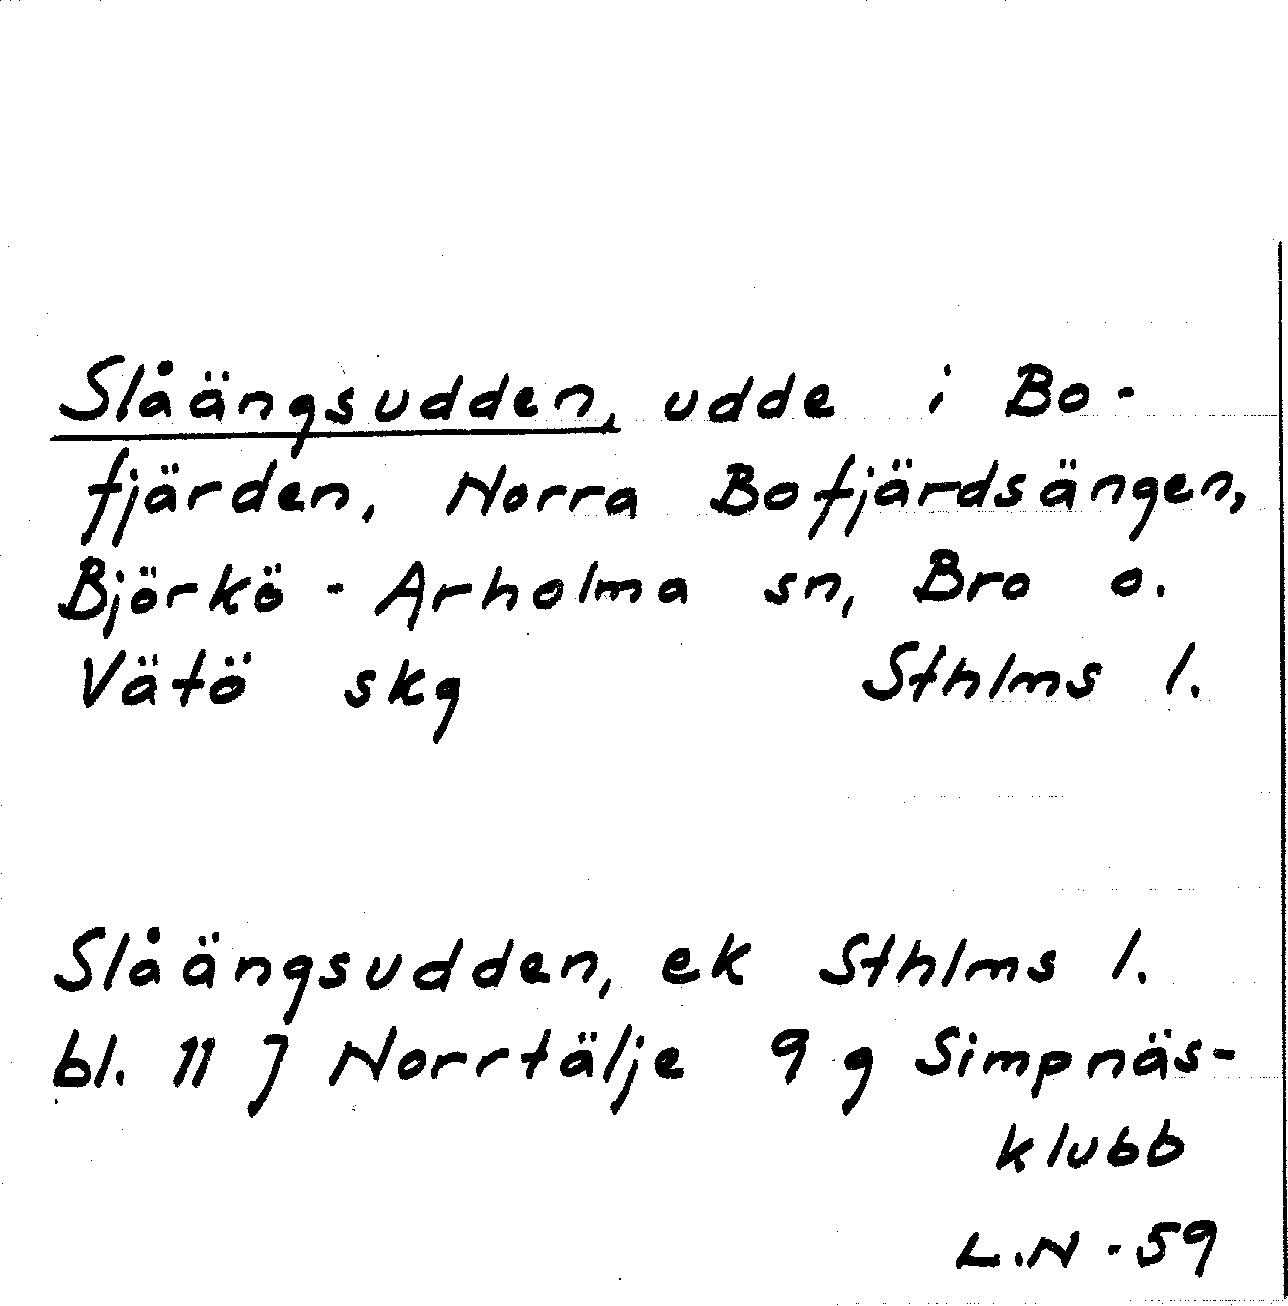 Slåängsudden, udde i Bo-
fjärden, Norra Bofjärdsängen,
Björkö - Arholma sn, Bro o.
Vätö skg Sthlms l.
Slåängsudden, ek Sthlms l.
bl. 11 J Norrtälje 9 g Simpnäs-
klubb
L.N - 59